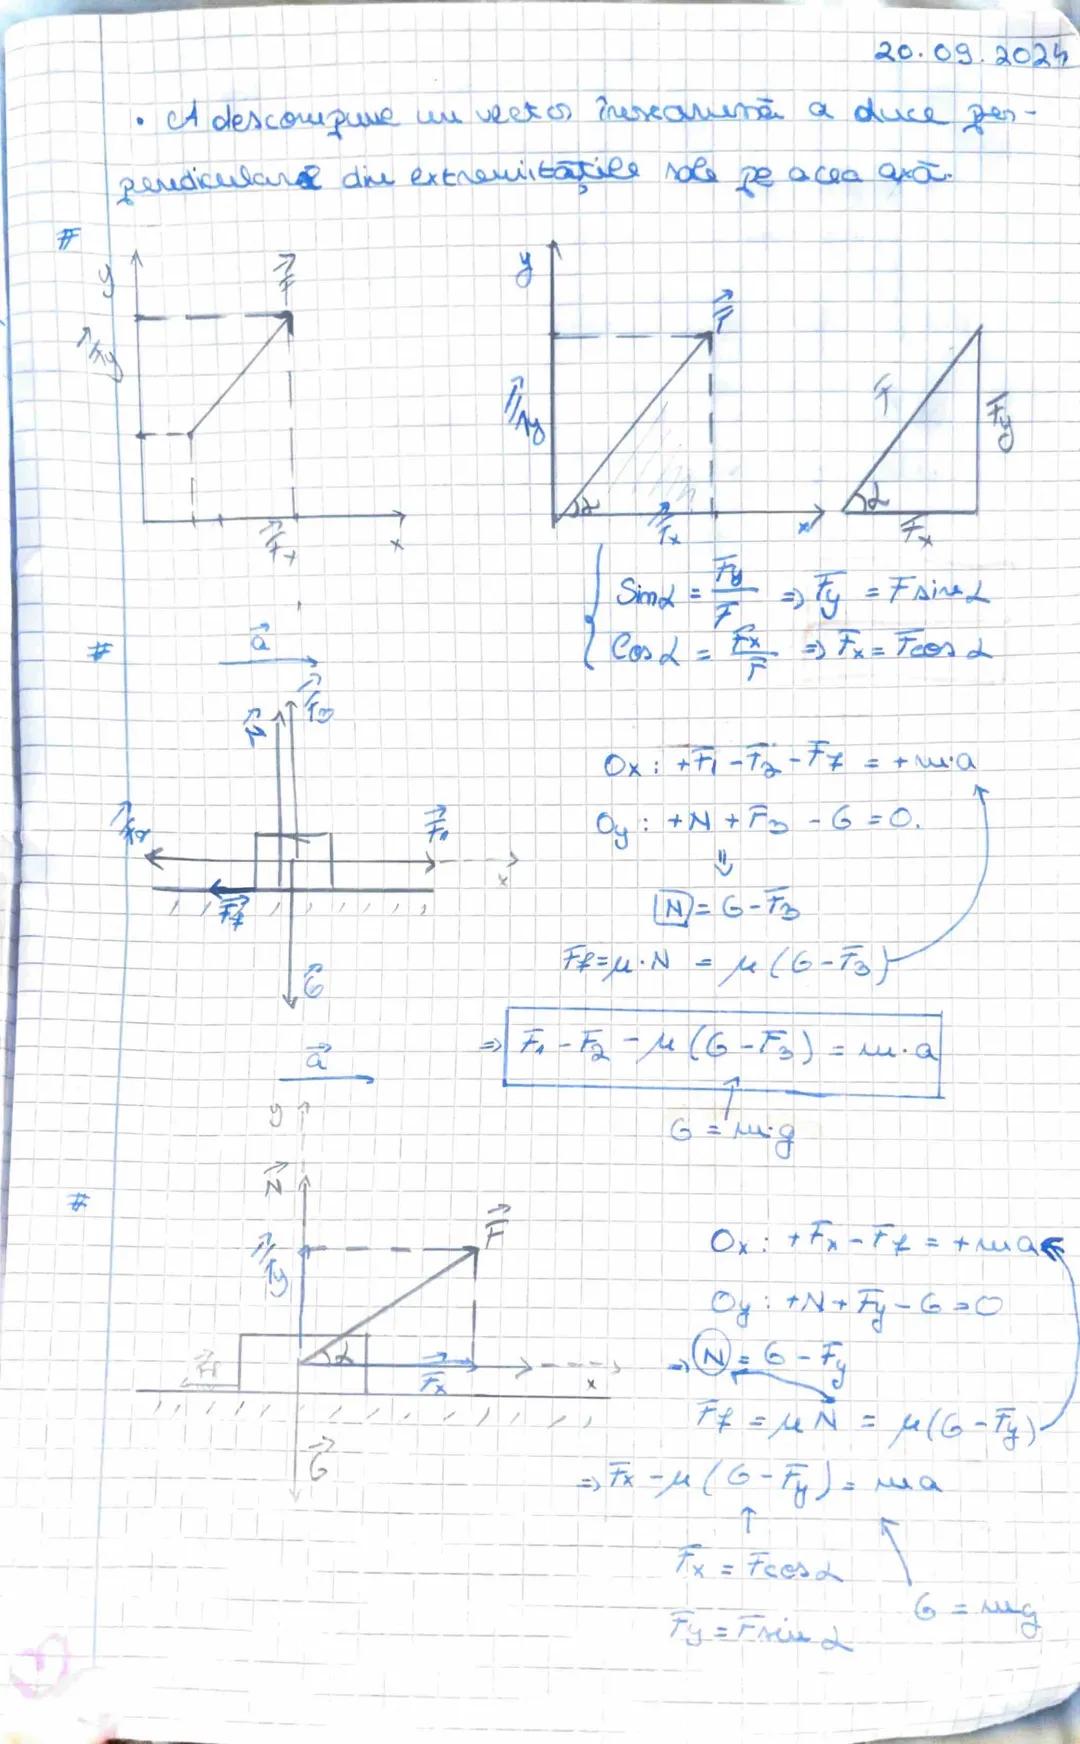 20.09.2024
• A descompune un vector înseamnă a duce per-
pendiculară din extremitățile sale pe acea axă.
#
y
F⃗
F⃗y
F⃗x
x
y
F⃗
F⃗y
α
F⃗x
x
F
Fy
α
Fx
Sinα = Fy/F => Fy = F sinα
Cosα = Fx/F => Fx = F cosα
#
a⃗
N⃗
F⃗3
F⃗2
F⃗1
x
F⃗f
G⃗
Ox: +F1 - F2 - Ff = +m·a
Oy: +N + F3 - G = 0.
⇓
N = G - F3
Ff = μ·N = μ(G - F3)
=> F1 - F2 - μ(G - F3) = m·a
G = m·g
a⃗
y
#
N⃗
F⃗y
F⃗
α
F⃗x
x
F⃗f
G⃗
Ox: +Fx - Ff = +ma
Oy: +N + Fy - G = 0
=> N = G - Fy
Ff = μN = μ(G - Fy)
=> Fx - μ(G - Fy) = ma
Fx = F cosα
G = mg
Fy = F sinα